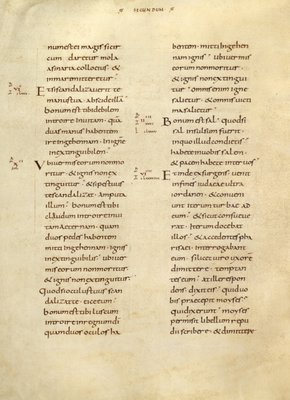 SECUNDUM
bonum est ei magis si cir
cum daretur mola
asinaria collo eius &
in mare mitteretur·
Et si scandalizauerit te
manus tua· abscide illā
bonum est tibi debilem
introire in uitam· quā
duas manus habentem
ire in gehennam· in igne
inextinguibilem·
Ubi uermis eorum non mo
ritur· & ignis non ex
tinguitur· & si pes tuus
te scandalizat· amputa
illum· bonum est tibi
claudum introire in ui
tam aeternam· quam
duos pedes habentem
mitti in gehennam· ignis
inextinguibilis· ubi uer
mis eorum non moritur
& ignis non extinguitur·
Quod si oculus tuus scan
dalizat te· eice eum·
bonum est tibi luscum
introire in regnum di
quam duos oculos ha
bentem· mitti in gehen
nam ignis· ubi uermis
eorum non moritur·
& ignis non extingui
tur· omnis enim igne
salietur· & omnis uicti
ma salietur·
Bonum est sal· quod si
sal insulsum fuerit·
in quo illud condietis·
habete in uobis sal em·
& pacem habete inter uos·
Et inde exsurgens uenit
in fines iudaeae ultra
iordanen· & conueni
unt iterum turbae ad
eum· & sicut consueue
rat· iterum docebat
illos· & accedentes pha
risaei· interrogabant
eum· si licet uiro uxorē
dimittere· temptan
tes eum· at ille respon
dens dixit eis· quid uo
bis praecepit moyses·
qui dixerunt· moyses
permisit libellum repu
dii scribere· & dimittere